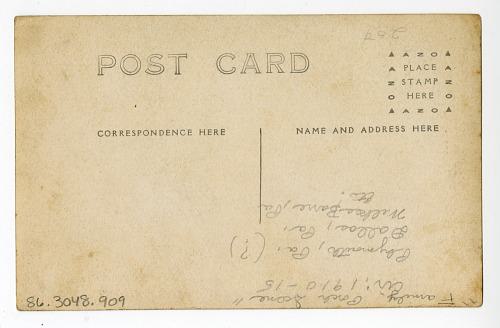 POST CARD
AZO
PLACE
STAMP
HERE
AZO
CORRESPONDENCE HERE
NAME AND ADDRESS HERE
"Family Porch Scene"
1910-15
Plymouth, Pa. (?)
Dallas, Pa.,
Wilkes-Barre, Pa
86.3048.909